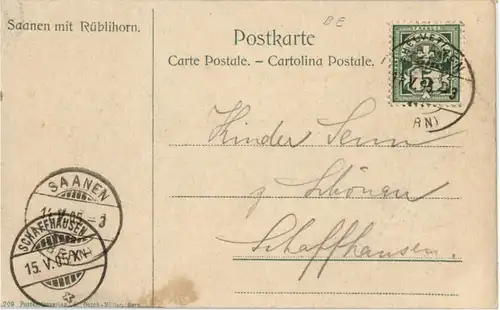 Saanen mit Rüblihorn.
BE
Postkarte
Carte Postale. – Cartolina Postale.
HELVETIA
5
14.V.05
Kinder Senn
z Schönen
Schaffhausen.
SAANEN
14.V.05 - 3
(BERN)
SCHAFFHAUSEN
15.V.05
209